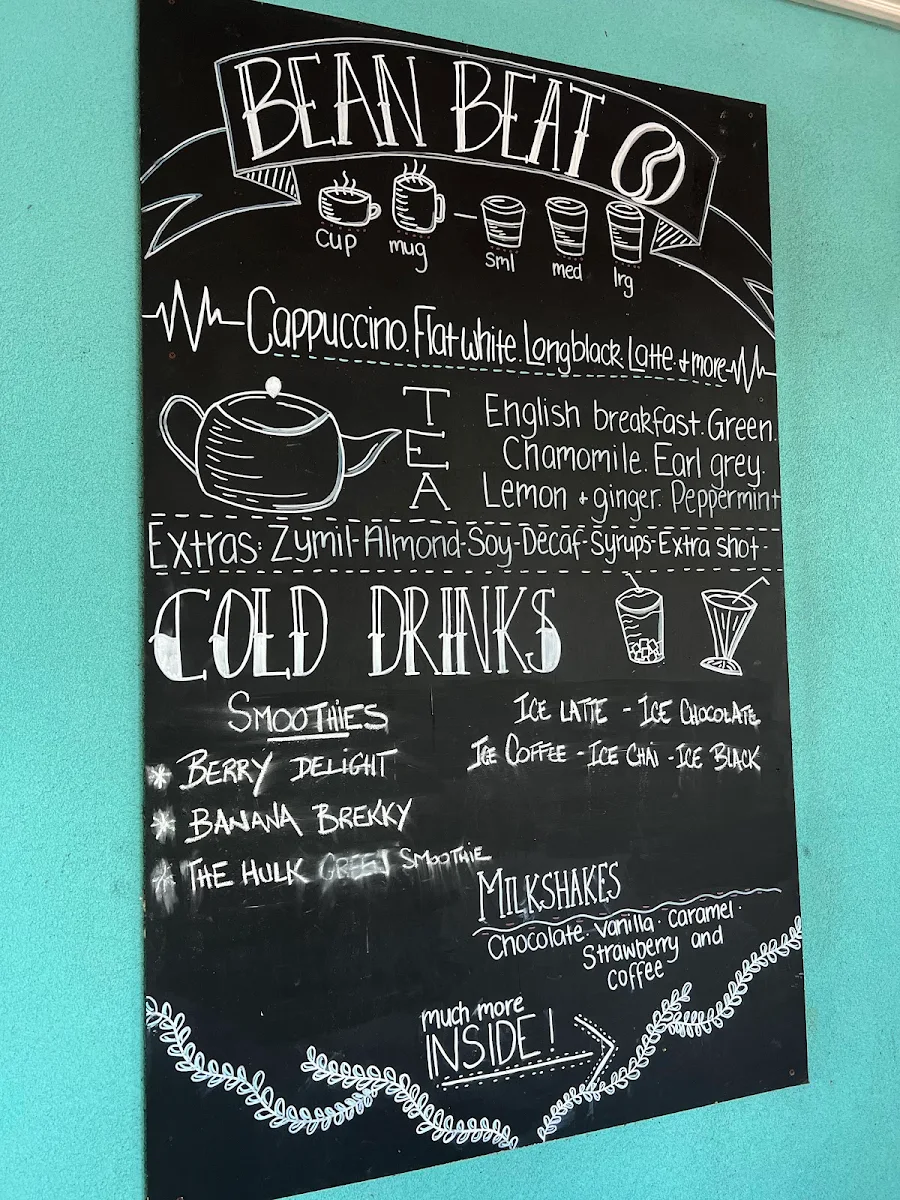 BEAN BEAT
cup mug sml med lrg
Cappuccino. Flat white. Longblack. Latte. + more
TEA
English breakfast. Green.
Chamomile. Earl grey.
Lemon + ginger. Peppermint
Extras: Zymil-Almond-Soy-Decaf-Syrups-Extra shot-
COLD DRINKS
SMOOTHIES
* BERRY DELIGHT
* BANANA BREKKY
* THE HULK GREEN SMOOTHIE
ICE LATTE - ICE CHOCOLATE
ICE COFFEE - ICE CHAI - ICE BLACK
MILKSHAKES
Chocolate. Vanilla. Caramel.
Strawberry and
coffee
much more
INSIDE!